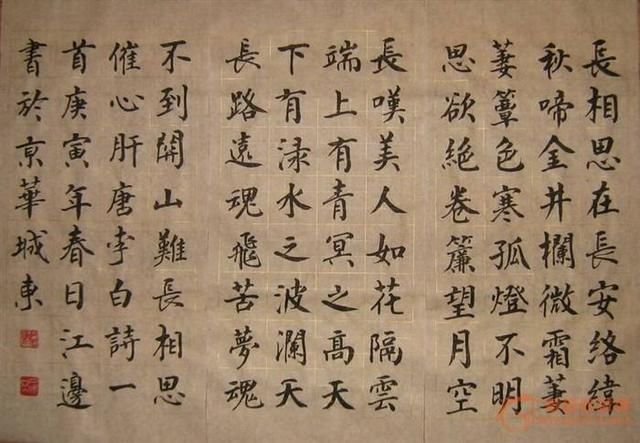 長相思在長安絡緯
秋啼金井欄微霜萋
萋簟色寒孤燈不明
思欲絕卷簾望月空
長嘆美人如花隔雲
端上有青冥之高天
下有渌水之波瀾天
長路遠魂飛苦夢魂
不到開山難長相思
催心肝唐李白詩一
首庚寅年春日江邊
書於京華城東